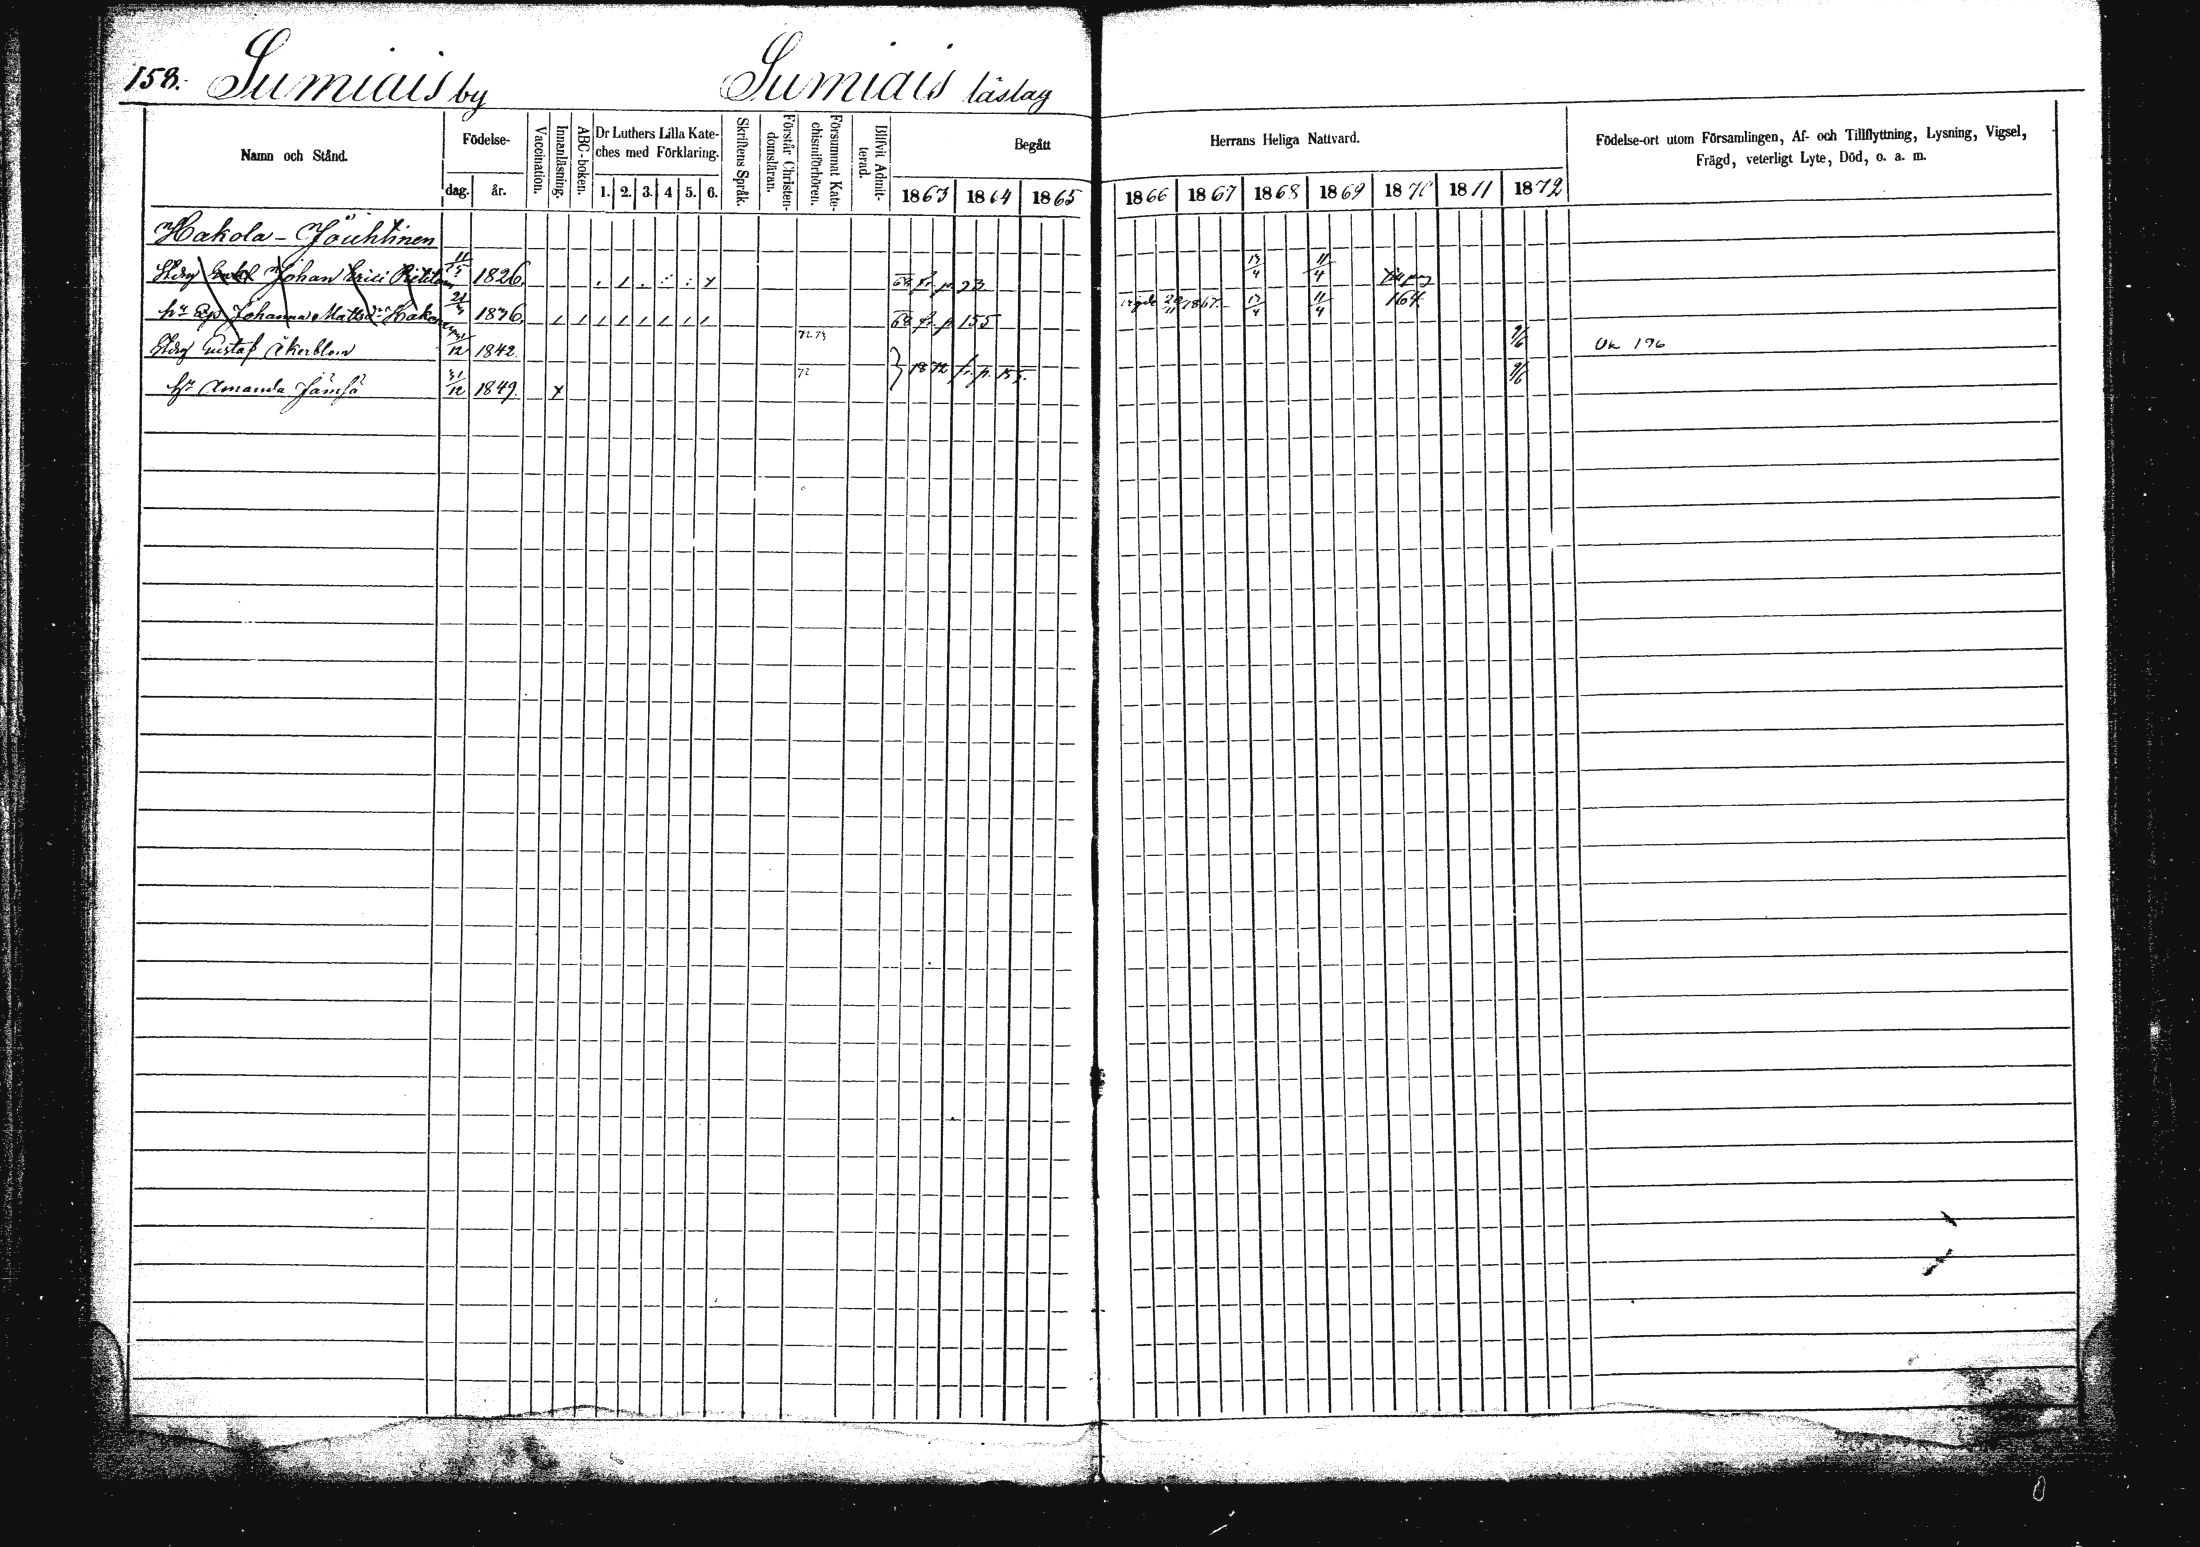 158. Sumiais by Sumiais läslag
Namn och Stånd. Födelse- dag. år. Vaccination. Innanläsning. ABC-boken. Dr Luthers Lilla Kateches med Förklaring. 1. 2. 3. 4 5. 6. Skriftens Språk. Förstår Christendomsläran. Försummat Katechismiförhören. Blifvit Admitterad. Begått
1863 1864 1865
Herrans Heliga Nattvard.
1866 1867 1868 1869 1870 1871 1872
Födelse-ort utom Församlingen, Af- och Tillflyttning, Lysning, Vigsel,
Frägd, veterligt Lyte, Död, o. a. m.
Hakola - Jouhtinen
Johan 11/5 1826. 68 fr. p 23 13/4 11/4
Johanna Mattsd:r 1836. 68 fr. p 155 1867. 13/4 11/4 164.
Gustaf Åkerblom 12 1842. 72 73 9/6 Uk 196
hu Amanda Jämsä 31/12 1849. x 72 } 1872 fr. p. 155. 9/6